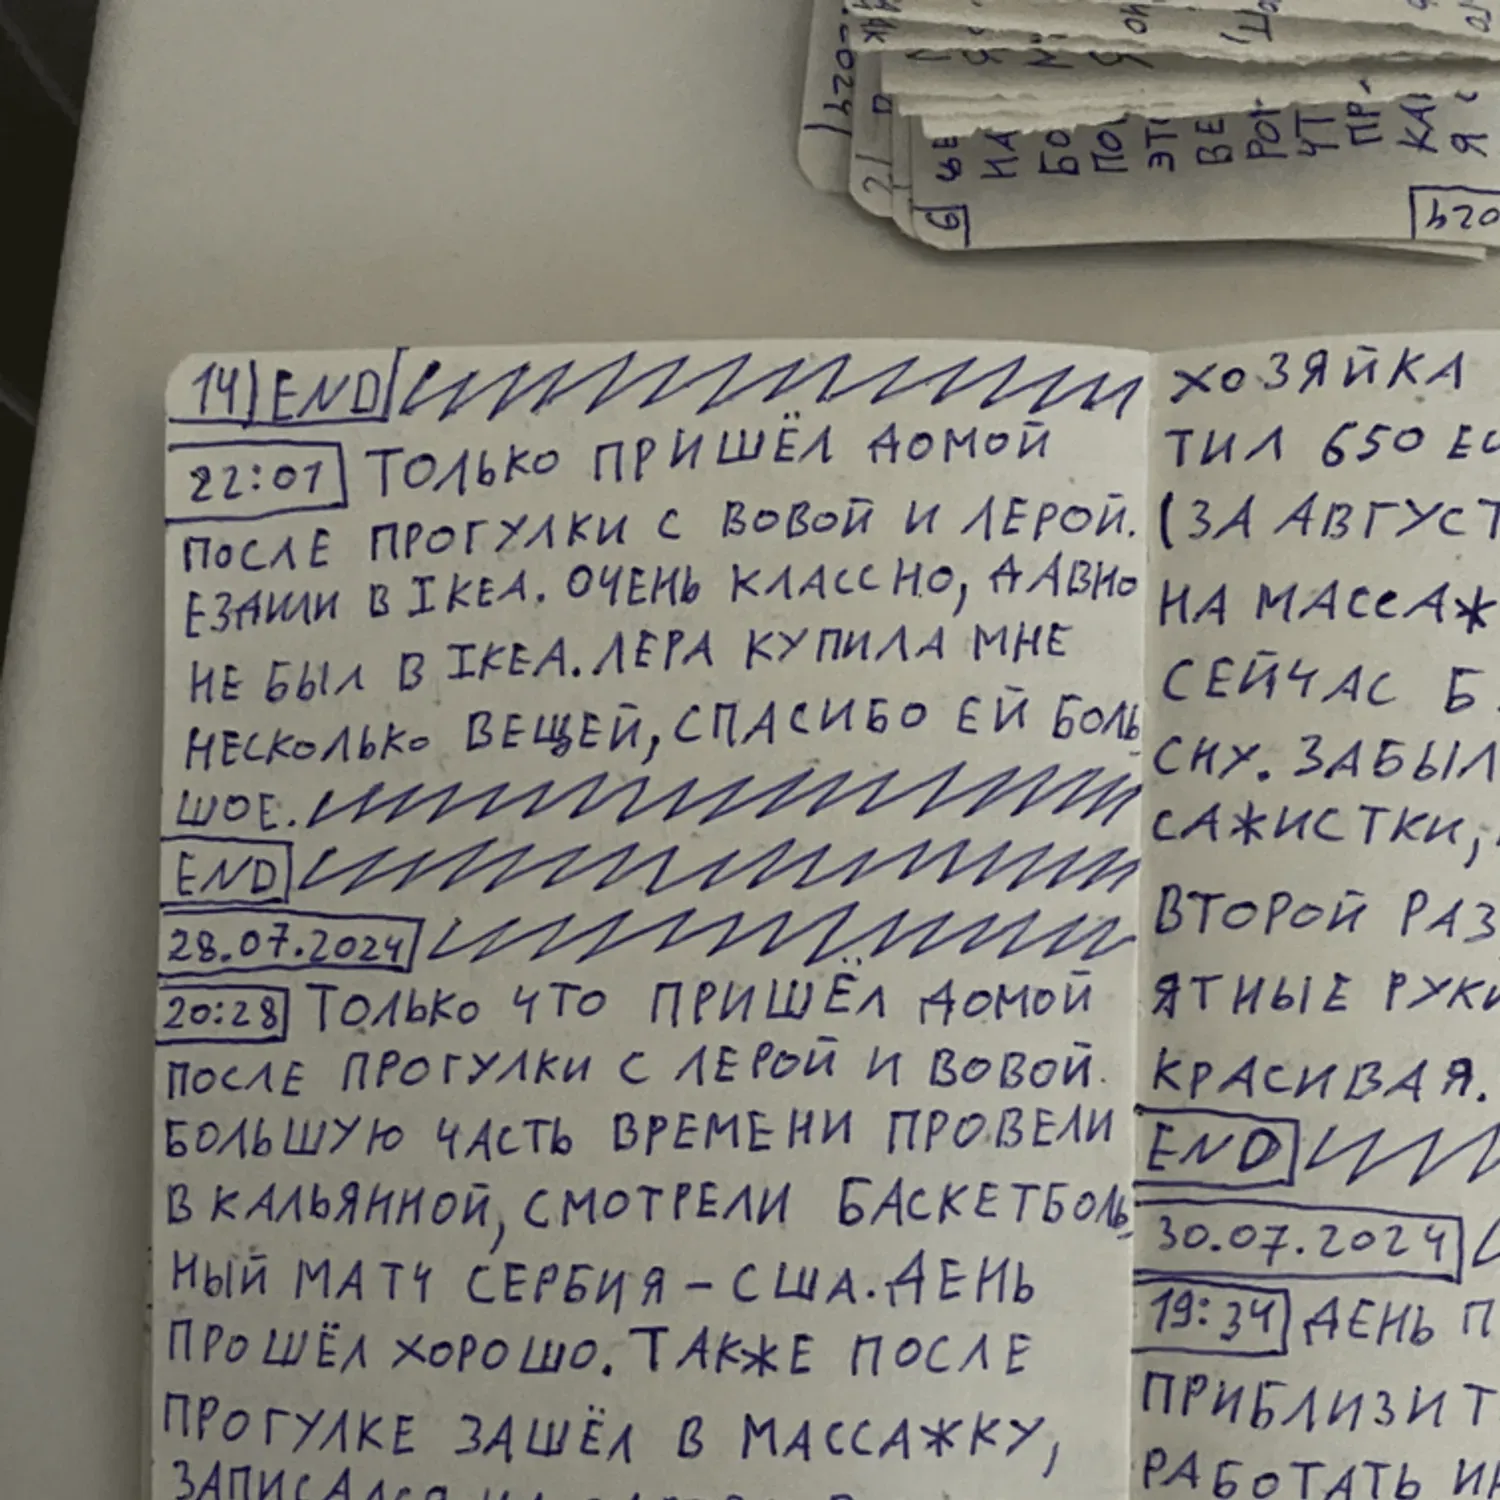 14) END
22:01 ТОЛЬКО ПРИШЁЛ ДОМОЙ
ПОСЛЕ ПРОГУЛКИ С ВОВОЙ И ЛЕРОЙ.
ЕЗДИЛИ В IKEA. ОЧЕНЬ КЛАССНО, ДАВНО
НЕ БЫЛ В IKEA. ЛЕРА КУПИЛА МНЕ
НЕСКОЛЬКО ВЕЩЕЙ, СПАСИБО ЕЙ БОЛЬ
ШОЕ.
END
28.07.2024
20:28 ТОЛЬКО ЧТО ПРИШЁЛ ДОМОЙ
ПОСЛЕ ПРОГУЛКИ С ЛЕРОЙ И ВОВОЙ.
БОЛЬШУЮ ЧАСТЬ ВРЕМЕНИ ПРОВЕЛИ
В КАЛЬЯННОЙ, СМОТРЕЛИ БАСКЕТБОЛЬ
НЫЙ МАТЧ СЕРБИЯ – США. ДЕНЬ
ПРОШЁЛ ХОРОШО. ТАКЖЕ ПОСЛЕ
ПРОГУЛКЕ ЗАШЁЛ В МАССАЖКУ,
ЗАПИСАЛСЯ
ХОЗЯЙКА
ТИЛ 650
(ЗА АВГУСТ
НА МАССАЖ
СЕЙЧАС Б
СНУ. ЗАБЫЛ
САЖИСТКИ,
ВТОРОЙ РАЗ
ЯТНЫЕ РУКИ
КРАСИВАЯ.
END
30.07.2024
19:34 ДЕНЬ П
ПРИБЛИЗИТ
РАБОТАТЬ